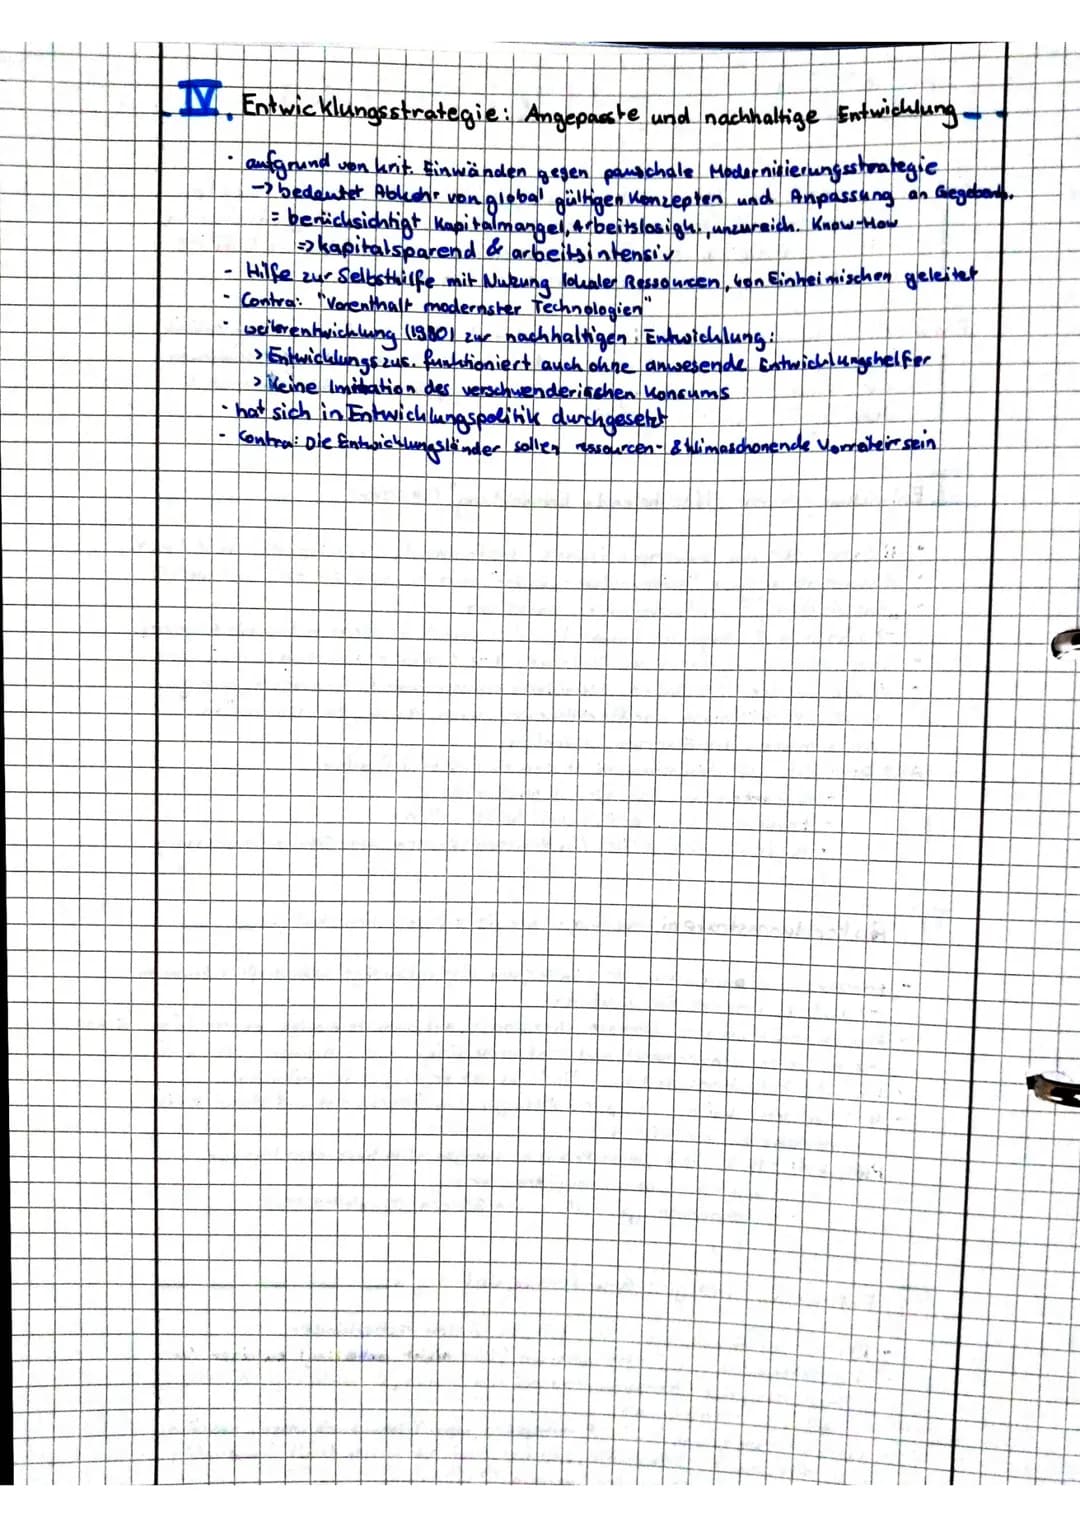 IV. Entwicklungsstrategie: Angepasste und nachhaltige Entwicklung
· aufgrund von krit. Einwänden gegen pauschale Modernisierungsstrategie
-> bedeutet Abkehr von global gültigen Konzepten und Anpassung an Gegebenh.
= berücksichtigt Kapitalmangel, Arbeitslosigk., unzureich. Know-How
=> kapitalsparend & arbeitsintensiv
- Hilfe zur Selbsthilfe mit Nutzung lokaler Ressourcen, von Einheimischen geleitet
- Contra: "Vorenthalt modernster Technologien"
· weiterentwicklung (1980) zur nachhaltigen Entwicklung:
> Entwicklungszus. funktioniert auch ohne anwesende Entwicklungshelfer
> Keine Imitation des verschwenderischen Konsums
· hat sich in Entwicklungspolitik durchgesetzt
- Contra: Die Entwicklungsländer sollen ressourcen- & klimaschonende Vorreiter sein